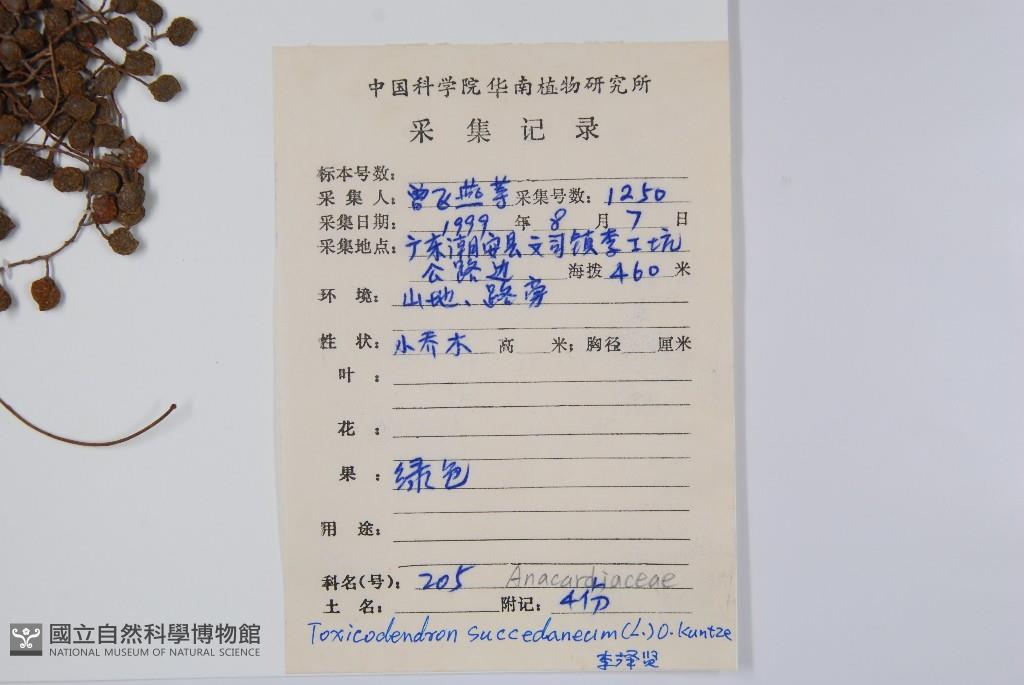 中国科学院华南植物研究所
采集记录
标本号数:
采集人: 曾飞燕等 采集号数: 1250
采集日期: 1999 年 8 月 7 日
采集地点: 广东潮安县文司镇李工坑
公路边 海拨 460 米
环境: 山地、路旁
性状: 小乔木 高 米; 胸径 厘米
叶:
花:
果: 绿色
用途:
科名(号): 205 Anacardiaceae
土名: 附记: 4份
Toxicodendron succedaneum (L.) O. Kuntze
李泽贤
國立自然科學博物館
NATIONAL MUSEUM OF NATURAL SCIENCE